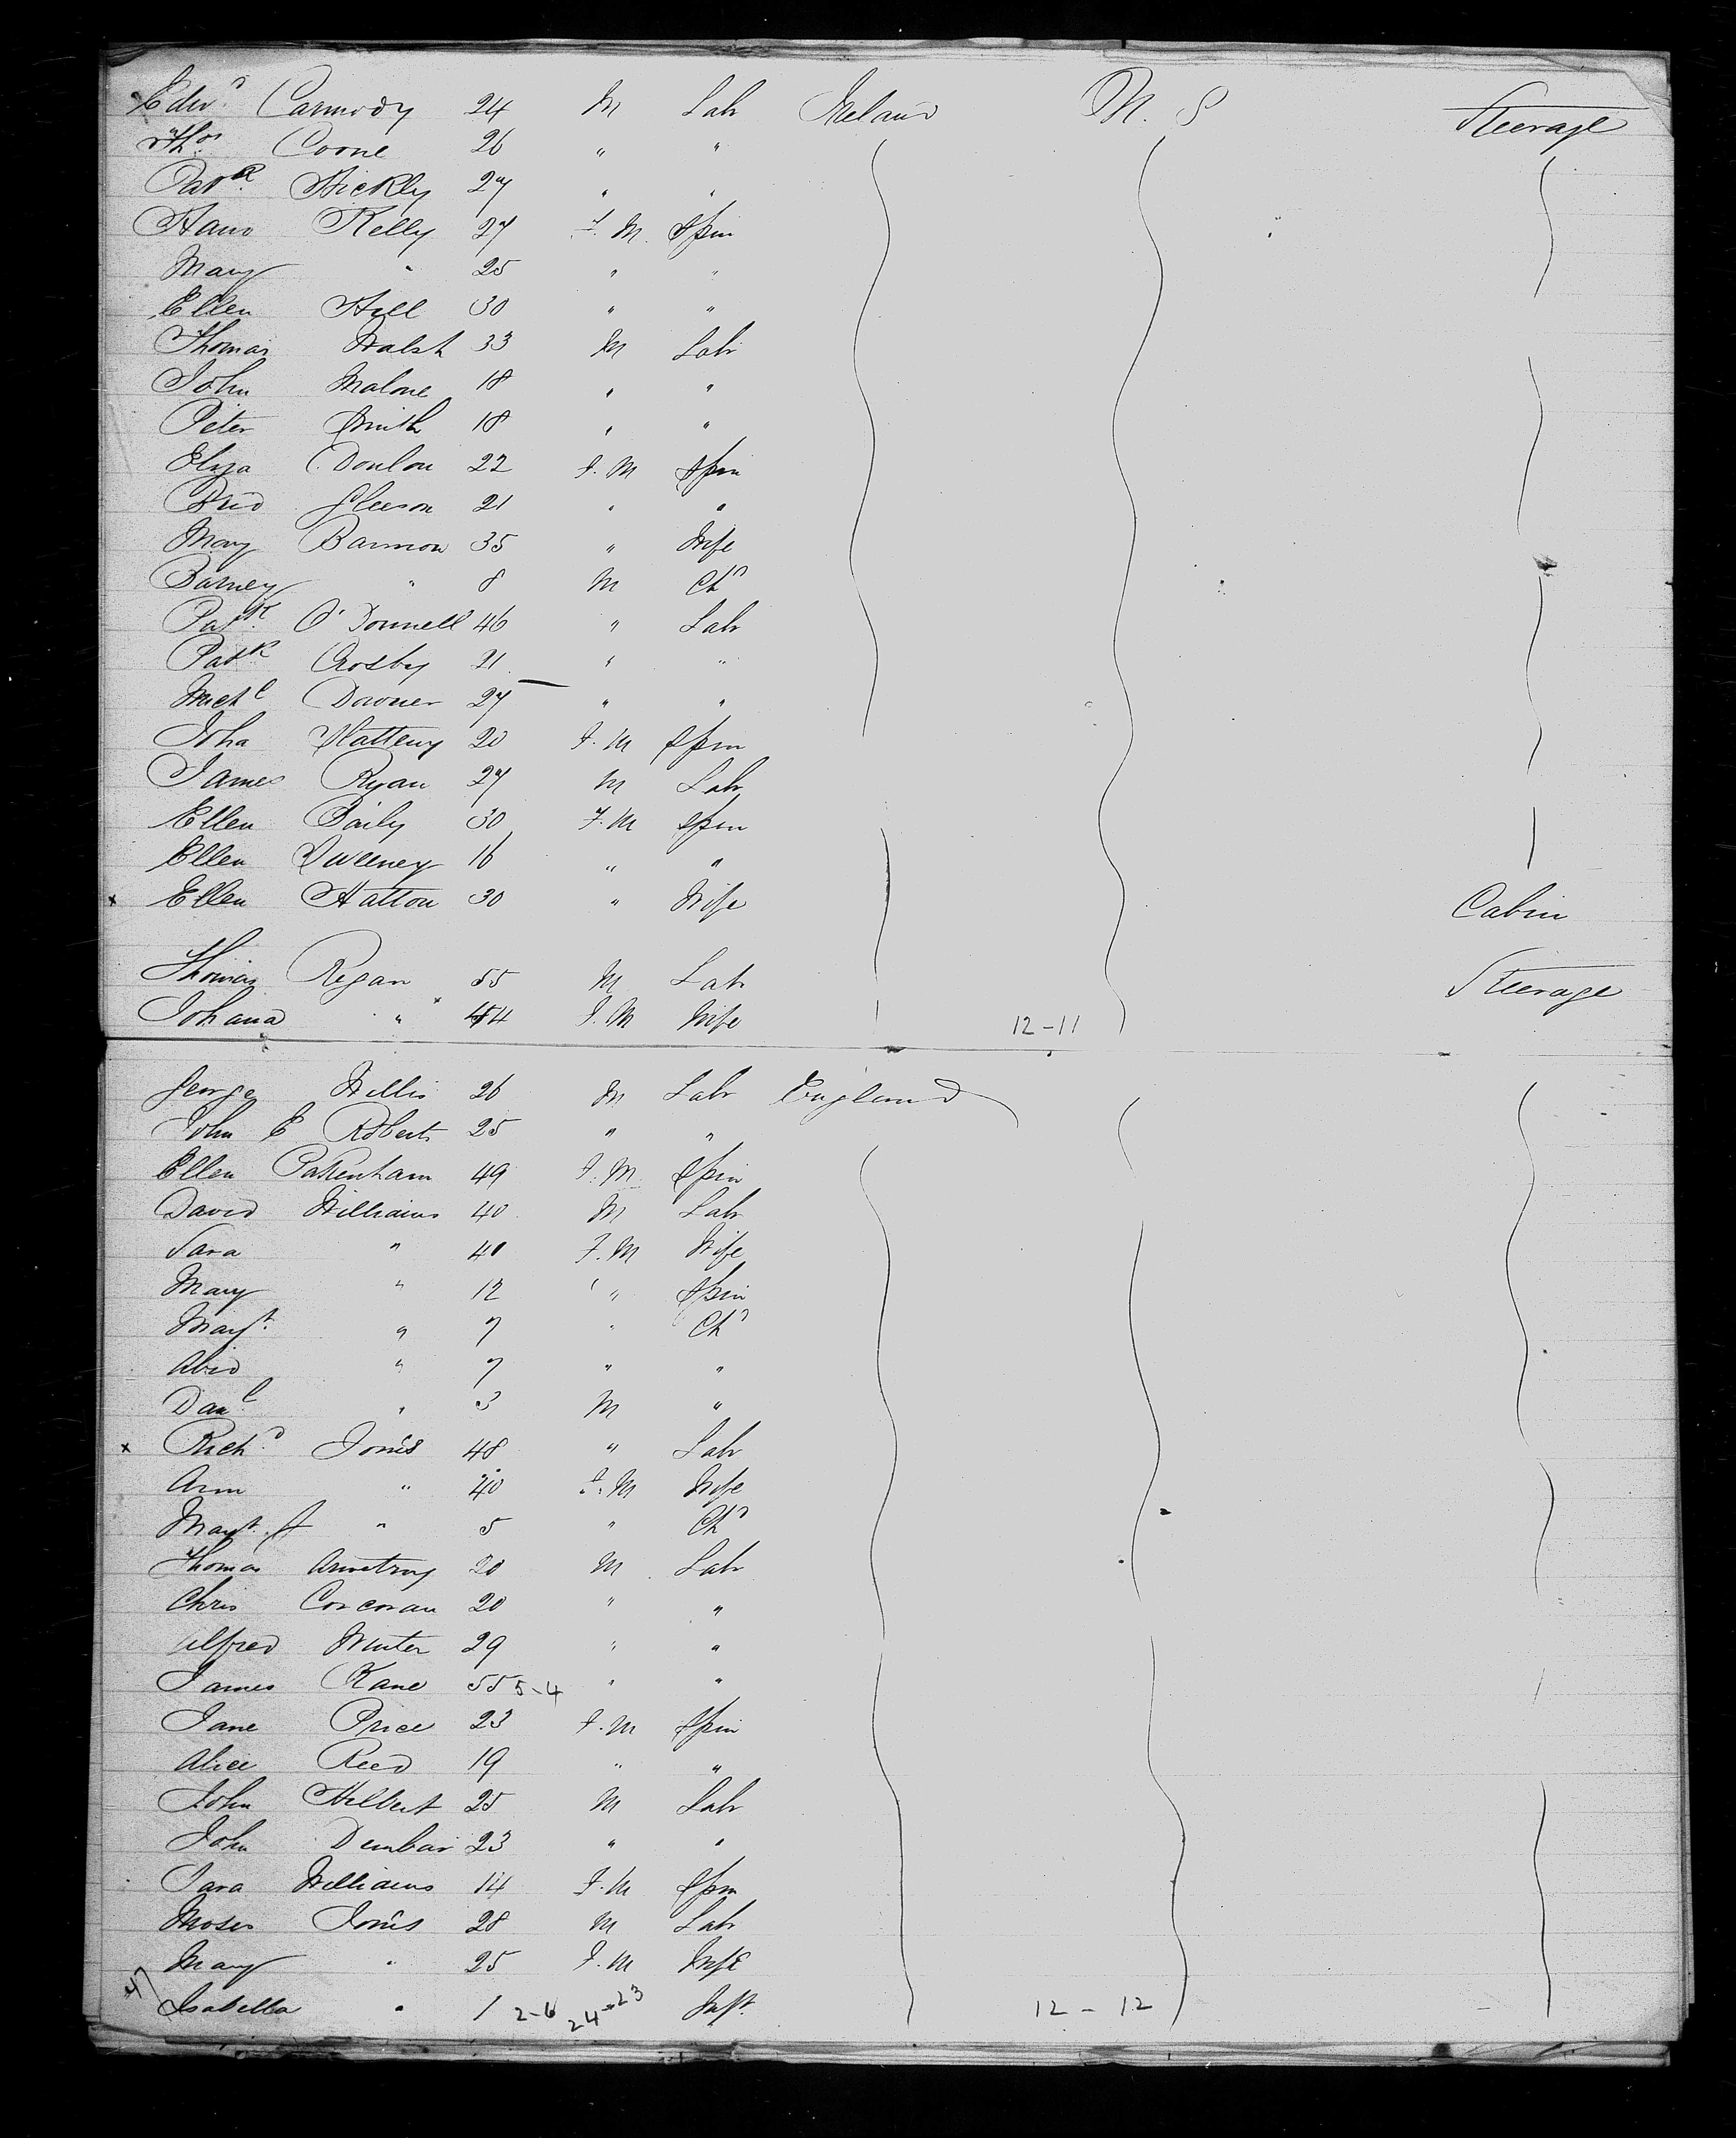 Edwd Carmody 24 M Labr Ireland U. S Steerage
Thos Coone 26 " "
Patk Hickly 27 " "
Hano Kelly 27 F. M Spin
Mary " 25 " "
Ellen Hill 30 " "
Thomas Walsh 33 M Labr
John Malone 18 " "
Peter Smith 18 " "
Eliza Donlon 22 F. M Spin
Brid Gleeson 21 " "
Mary Bannon 35 " Wife
Barney " 8 M Chd
Patk O'Donnell 46 " Labr
Patk Crosby 21 " "
Michl Downer 27 " "
Joha Slattery 20 F. M Spin
James Ryan 27 M Labr
Ellen Baily 30 F. M Spin
Ellen Sweeney 16 " "
x Ellen Hatton 30 " Wife Cabin
Thomas Regan 55 M Labr Steerage
Johana " x 44 F. M Wife 12-11
George Willis 26 M Labr England
John E Roberts 25 " "
Ellen Pakenham 49 F. M Spin
David Williams 40 M Labr
Sara " 40 F. M Wife
Mary " 12 " Spin
Margt " 7 " Chd
" 7 " "
Danl " 3 M "
x Richd Jones 48 " Labr
Ann " 40 F. M Wife
Margt A " 5 " Chd
Thomas Armstrong 20 M Labr
Chris Corcoran 20 " "
Alfred Winter 29 " "
James Kane 55 5-4 " "
Jane Price 23 F. M Spin
Alice Reed 19 " "
John Hilbert 25 M Labr
John Dunbar 23 " "
Sara Williams 14 F. M Spin
Moses Jones 28 M Labr
Mary " 25 F. M Wife
47 Isabella " 1 2-6 24-23 Inft. 12-12